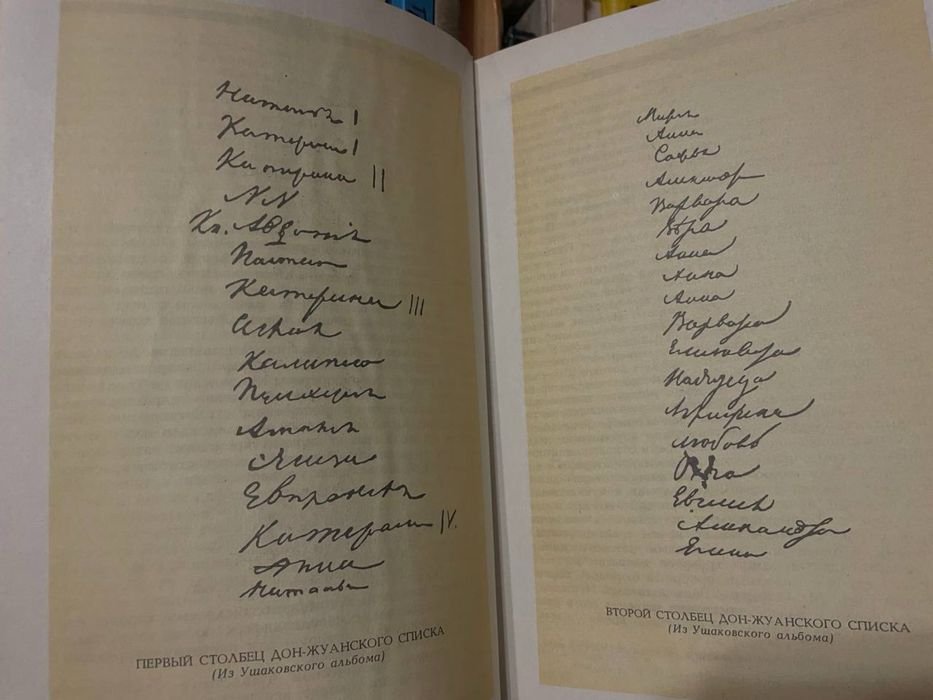 Наталья I
Катерина I
Катерина II
NN
Кн. Авдотия
Настасья
Катерина III
Аглая
Калипсо
Пульхерия
Амалия
Элиза
Евпраксея
Катерина IV.
Анна
Наталья
ПЕРВЫЙ СТОЛБЕЦ ДОН-ЖУАНСКОГО СПИСКА
(Из Ушаковского альбома)
Мария
Анна
Софья
Александра
Варвара
Вѣра
Анна
Анна
Анна
Варвара
Елизавета
Надежда
Аграфена
Любовь
Ольга
Евгения
Александра
Елена
ВТОРОЙ СТОЛБЕЦ ДОН-ЖУАНСКОГО СПИСКА
(Из Ушаковского альбома)